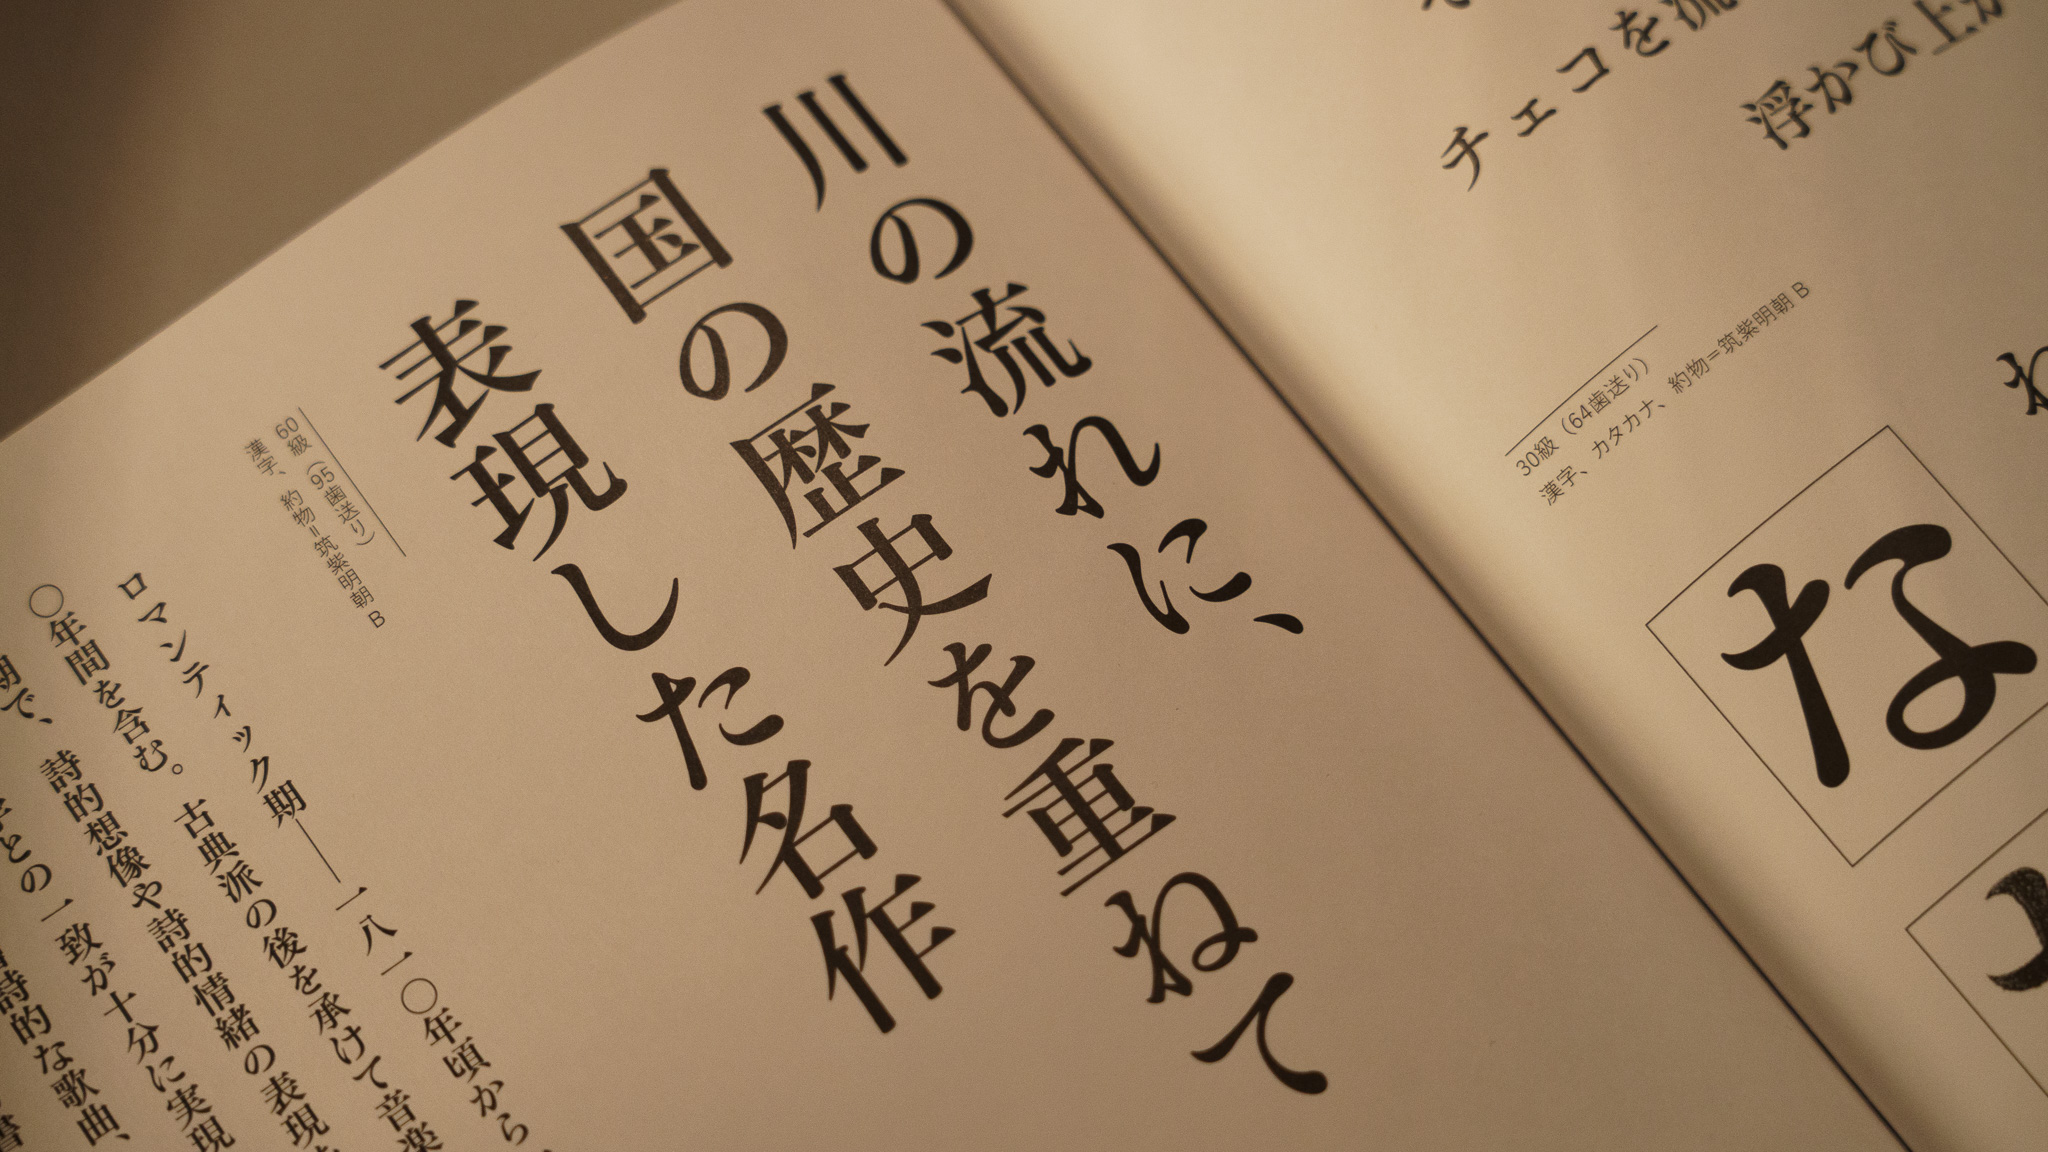 川の流れに、
国の歴史を重ねて
表現した名作
60級（95歯送り）
漢字、約物＝筑紫明朝 B
ロマンティック期――一八一〇年頃から
〇年間を含む。古典派の後を承けて音楽
期で、詩的想像や詩的情緒の表現
との一致が十分に実現
詩的な歌曲、
チェコを流
浮かび上が
30級（64歯送り）
漢字、カタカナ、約物＝筑紫明朝 B
わ
な